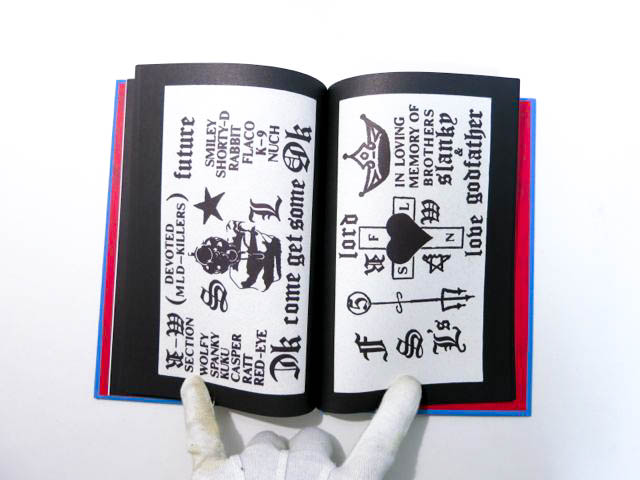 R-W (DEVOTED
MLD-KILLERS) future
SECTION
WOLFY
SPANKY
KUKU
CASPER
RATT
RED-EYE
S L
SMILEY
SHORTY-D
RABBIT
FLACO
K-9
NUCH
Dk come get some Ok
F
S
L's
5
lord
R W
F L
S N
love
IN LOVING
MEMORY OF
BROTHERS
slanky
&
godfather